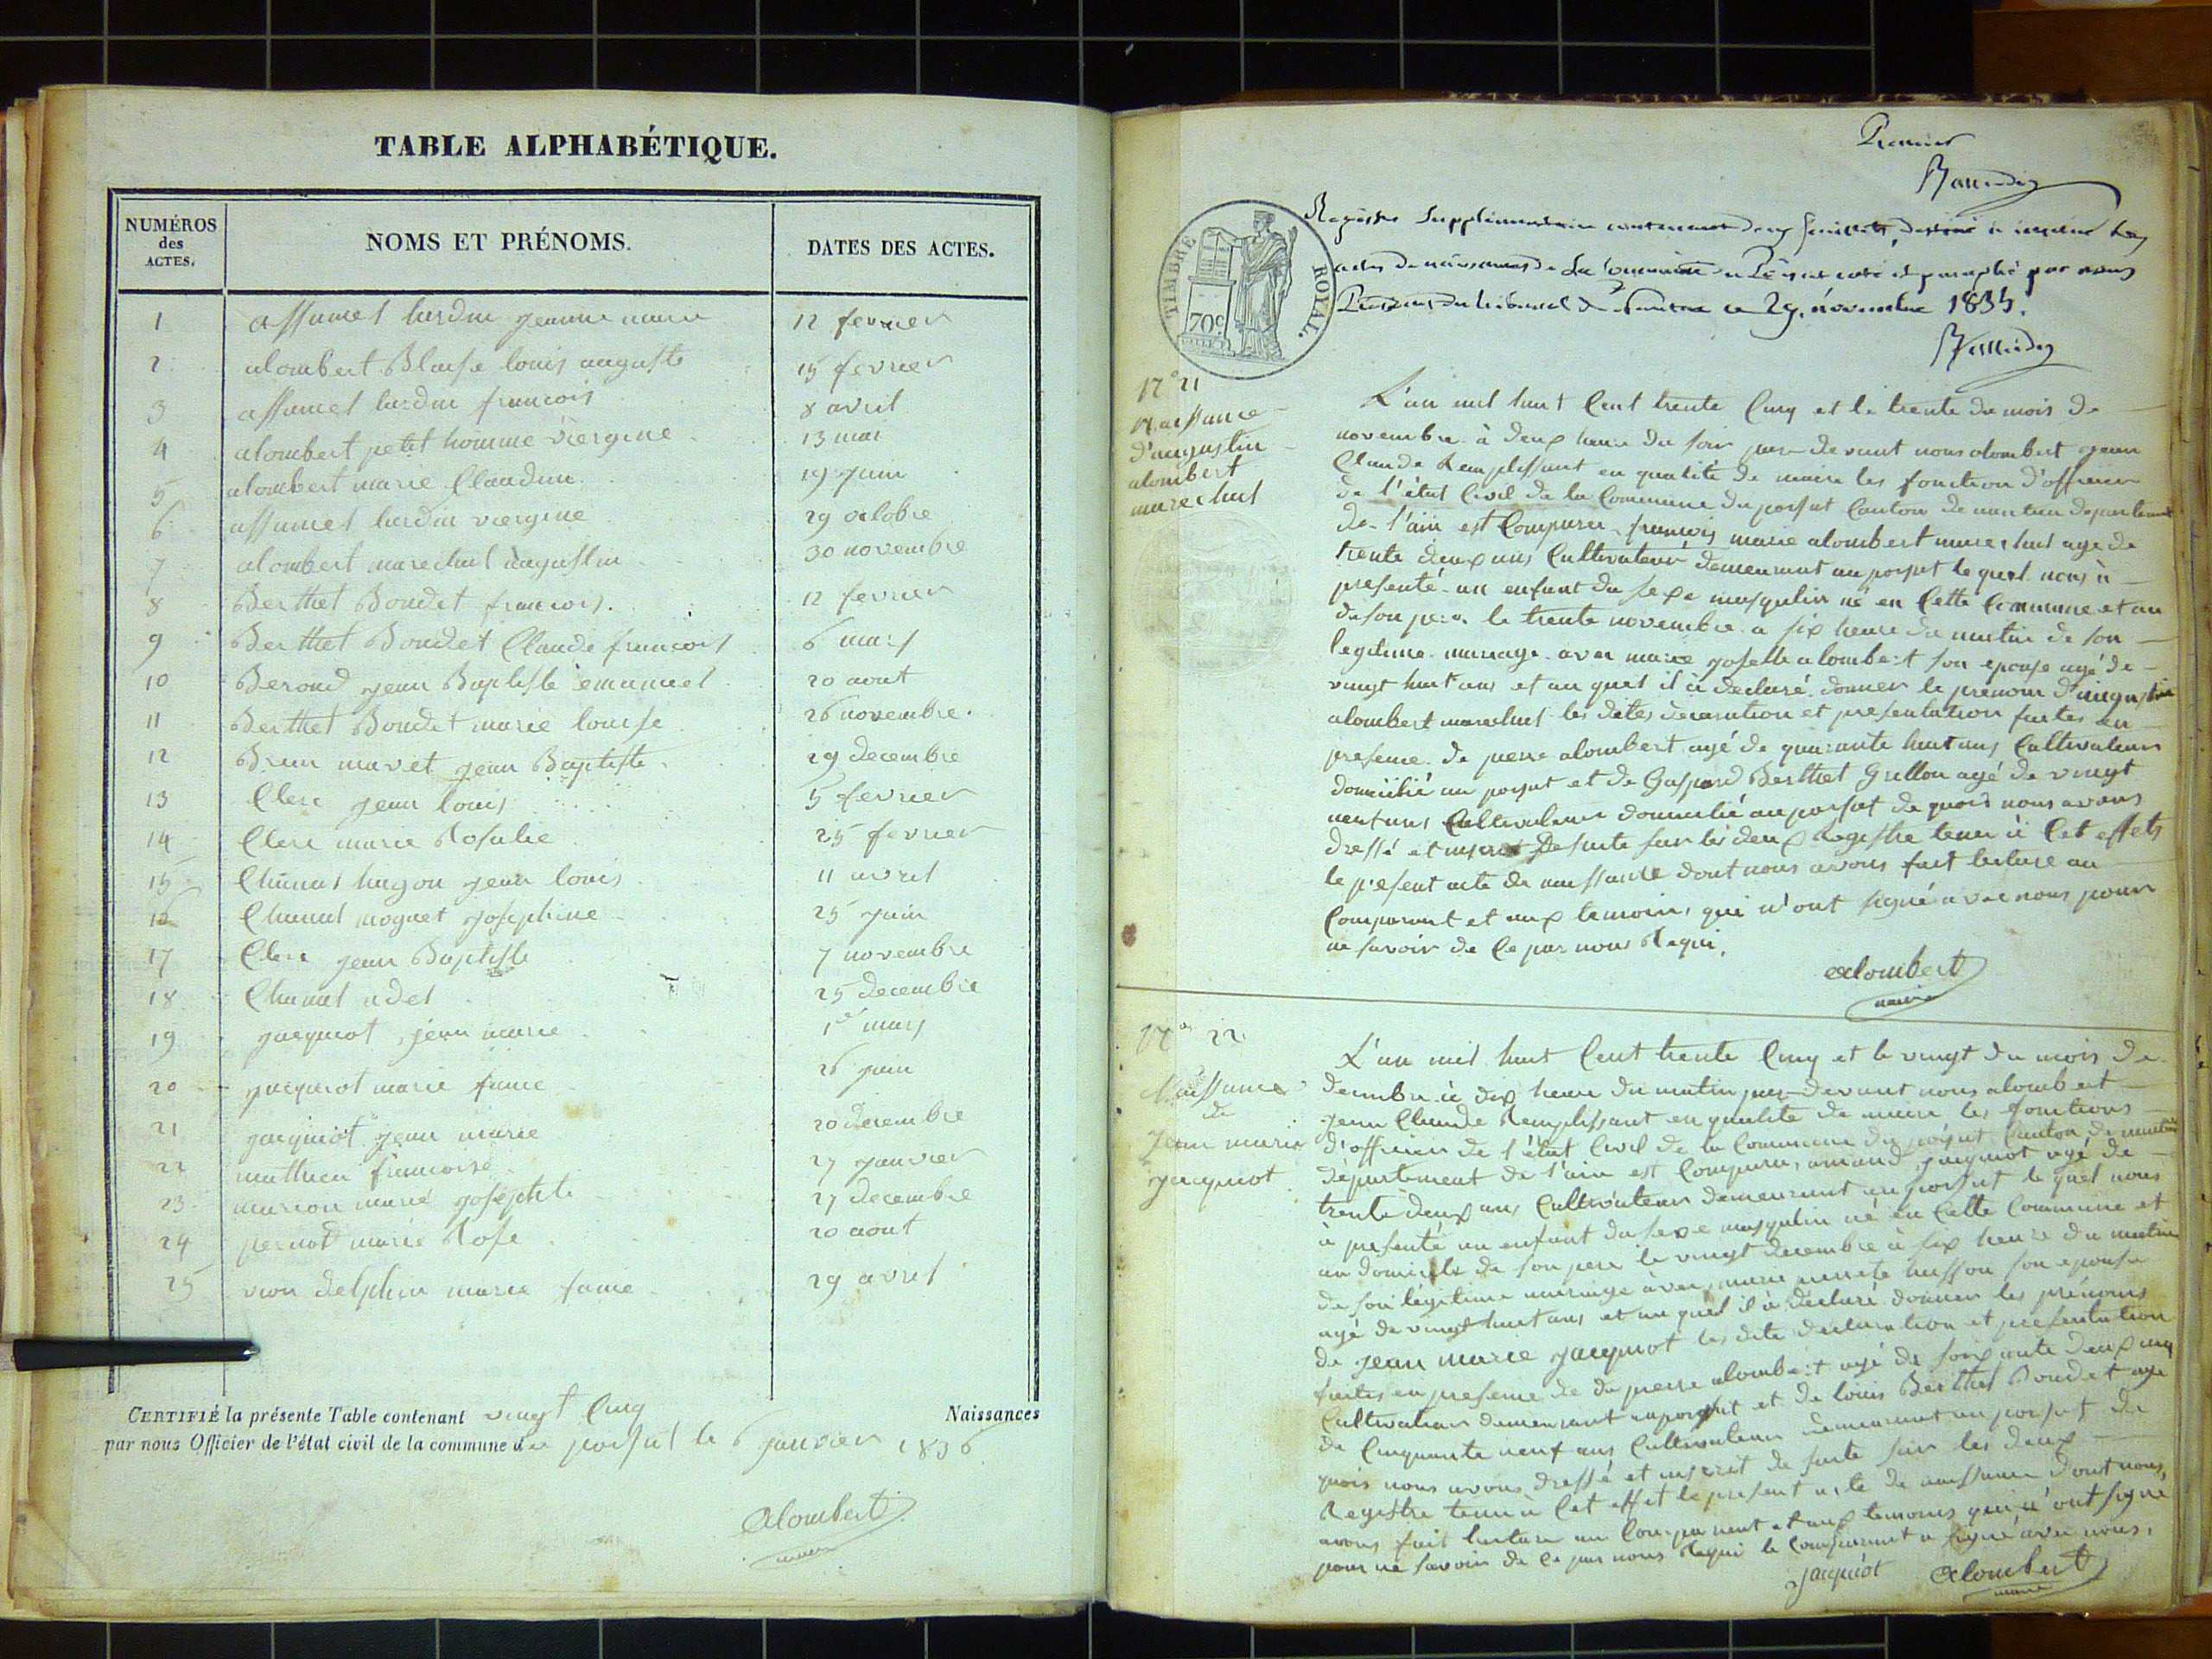 TABLE ALPHABÉTIQUE.
NUMÉROS des ACTES.
NOMS ET PRÉNOMS.
DATES DES ACTES.
1 assumel lurdin jeanne marie 12 fevrier
2 alombert Blaise louis auguste 15 fevrier
3 assumel lurdin francois 8 avril
4 alombert petit homme viergine 13 mai
5 alombert marie Claudine 19 juin
6 assumel lurdin viergine 29 octobre
7 alombert marechal augustin 30 novembre
8 Berthet Bondet francois. 12 fevrier
9 Berthet Bondet Claude francois 6 mars
10 Beroud jean Baptiste emanuel 20 aout
11 Berthet Bondet marie louise 26 novembre.
12 Brun mavet jean Baptiste 29 decembre
13 Clerc jean louis 5 fevrier
14 Clerc marie Rosalie 25 fevrier
15 Chanel hugon jean louis 11 avril
16 Chanel moguet josephine 25 juin
17 Clerc jean Baptiste 7 novembre
18 Chanel adel 25 decembre
19 jacquiot jean marie 1er mars
20 jacquiot marie fanie 26 juin
21 jacquiot jean marie 20 decembre
22 mathieu francoise 27 janvier
23 marion marie josephte 27 decembre
24 pernod marie Rose 20 aout
25 vion delphin marie fanie 29 avril
CERTIFIÉ la présente Table contenant vingt Cinq Naissances
par nous Officier de l'état civil de la commune du poisat le 6 janvier 1836
alombert
maire
Premier
Registre Supplémentaire contenant deux feuillets, destiné à inscrire les
actes de naissances de La Commune du Poizat coté et paraphé par nous
Président du tribunal de Nantua le 29. novembre 1835.
TIMBRE ROYAL.
70c
N° 21
Naissance
d'augustin
alombert
marechal
L'an mil huit Cent trente Cinq et le trente du mois de
novembre à deux heure du soir par-devant nous alombert jean
Claude Remplissant en qualité de maire les fonction d'officier
de l'état Civil de la Commune du poisat Canton de nantua departement
de l'ain est Comparu francois marie alombert marechal age de
trente deux ans Cultivateur demeurant au poisat le quel nous à
presenté un enfant du sexe masqulin né en Cette Commune et au
de son pere le trente novembre a six heure du matin de son
legitime mariage avec marie josette alombert son epouse agé de
vingt huit ans et au quel il à declaré donner le prenom d'augustin
alombert marechal les dites declaration et presentation faites en
presence de pierre alombert agé de quarante huit ans Cultivateur
domicilié au poisat et de Gaspard Berthet Grillon agé de vingt
neuf ans Cultivateur domicilié au poisat de quoi nous avons
dressé et inscrit De suite sur les deux Registre tenu à Cet effets
le présent acte de naissance dont nous avons fait lecture au
Comparant et aux temoins qui n'ont signé avec nous pour
ne savoir de Ce par nous Requi.
alombert
maire
N° 22
Naissance
de
jean marie
jacquiot
L'an mil huit Cent trente Cinq et le vingt du mois de
decembre à dix heure du matin par-devant nous alombert
jean Claude Remplissant en qualité de maire les fonctions
d'officier de l'état Civil de la Commune du poisat Canton de nantua
département de l'ain est Comparu, amand jacquiot agé de
trente deux ans Cultivateur demeurant au poisat le quel nous
à presenté un enfant du sexe masqulin né en Cette Commune et
au domicile de son pere le vingt decembre à six heure du matin
de son légitime mariage avec marie husson son epouse
agé de vingt huit ans et au quel il à declaré donner les prénoms
de jean marie jacquiot les dite declaration et presentation
faites en presence de de pierre alombert agé de soixante deux ans
Cultivateur demeurant au poisat et de louis Berthet Bondet agé
de Cinquante neuf ans Cultivateur demeurant au poisat de
quoi nous avons dressé et inscrit de suite sur les deux
Registre tenu à Cet effet le present acte de naissance dont nous
avons fait lecture au Comparant et aux temoins qui n'ont signé
pour ne savoir de Ce par nous Requi le Comparant a signé avec nous.
jacquiot alombert
maire